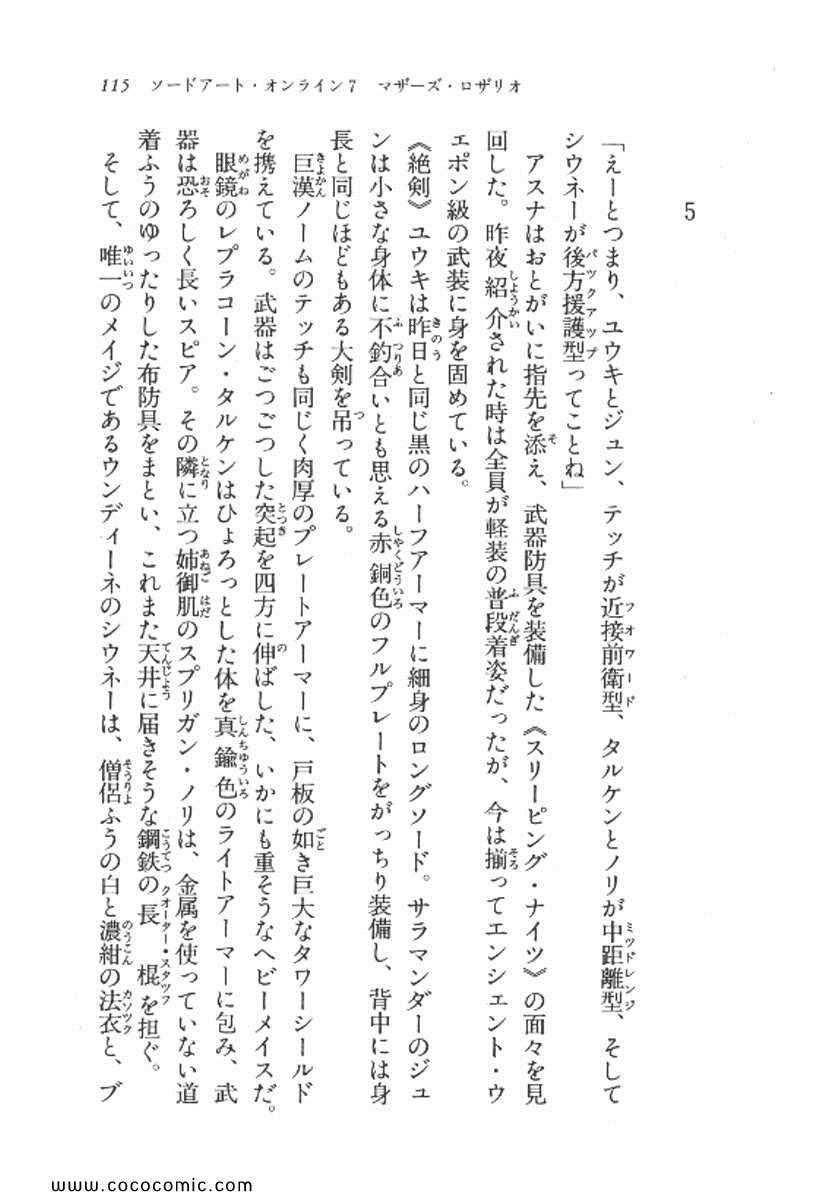 115 ソードアート・オンライン7 マザーズ・ロザリオ
5
「えーとつまり、ユウキとジュン、テッチが近接前衛型、タルケンとノリが中距離型、そして
シウネーが後方援護型ってことね」
アスナはおとがいに指先を添え、武器防具を装備した《スリーピング・ナイツ》の面々を見
回した。昨夜紹介された時は全員が軽装の普段着姿だったが、今は揃ってエンシェント・ウ
ェポン級の武装に身を固めている。
《絶剣》ユウキは昨日と同じ黒のハーフアーマーに細身のロングソード。サラマンダーのジュ
ンは小さな身体に不釣合いとも思える赤銅色のフルプレートをがっちり装備し、背中には身
長と同じほどもある大剣を吊っている。
巨漢ノームのテッチも同じく肉厚のプレートアーマーに、戸板の如き巨大なタワーシールド
を携えている。武器はごつごつした突起を四方に伸ばした、いかにも重そうなヘビーメイスだ。
眼鏡のレプラコーン・タルケンはひょろっとした体を真鍮色のライトアーマーに包み、武
器は恐ろしく長いスピア。その隣に立つ姉御肌のスプリガン・ノリは、金属を使っていない道
着ふうのゆったりした布防具をまとい、これまた天井に届きそうな鋼鉄の長棍を担ぐ。
そして、唯一のメイジであるウンディーネのシウネーは、僧侶ふうの白と濃紺の法衣と、ブ
www.cococomic.com